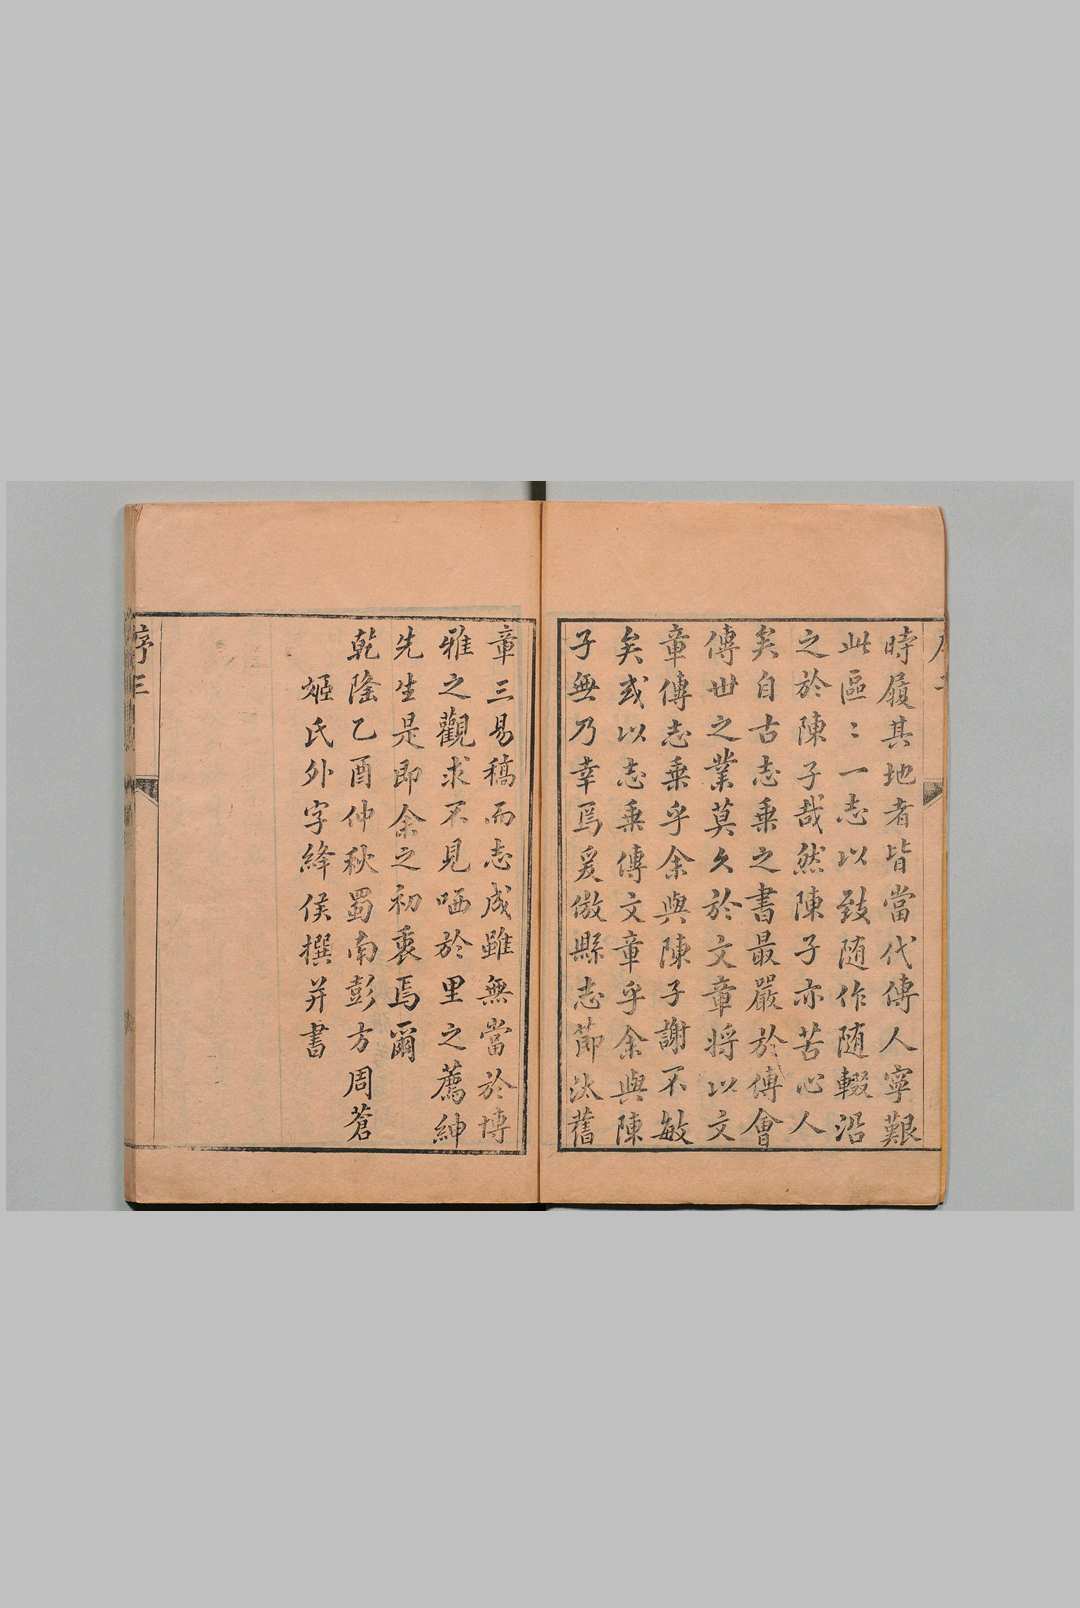 時履其地者皆當代傳人寧艱
此區〻一志以致随作随輟沿
之於陳子哉然陳子亦苦心人
矣自古志乗之書最嚴於傅會
傳世之業莫久於文章将以文
章傳志乗乎余與陳子謝不敏
矣或以志乗傳文章乎余與陳
子無乃幸焉爰倣縣志節汰舊
章三易稿而志成雖無當於博
雅之觀求不見哂於里之薦紳
先生是即余之初衷焉爾
乾隆乙酉仲秋蜀南彭方周蒼
姬氏外字絳侯撰并書
序三